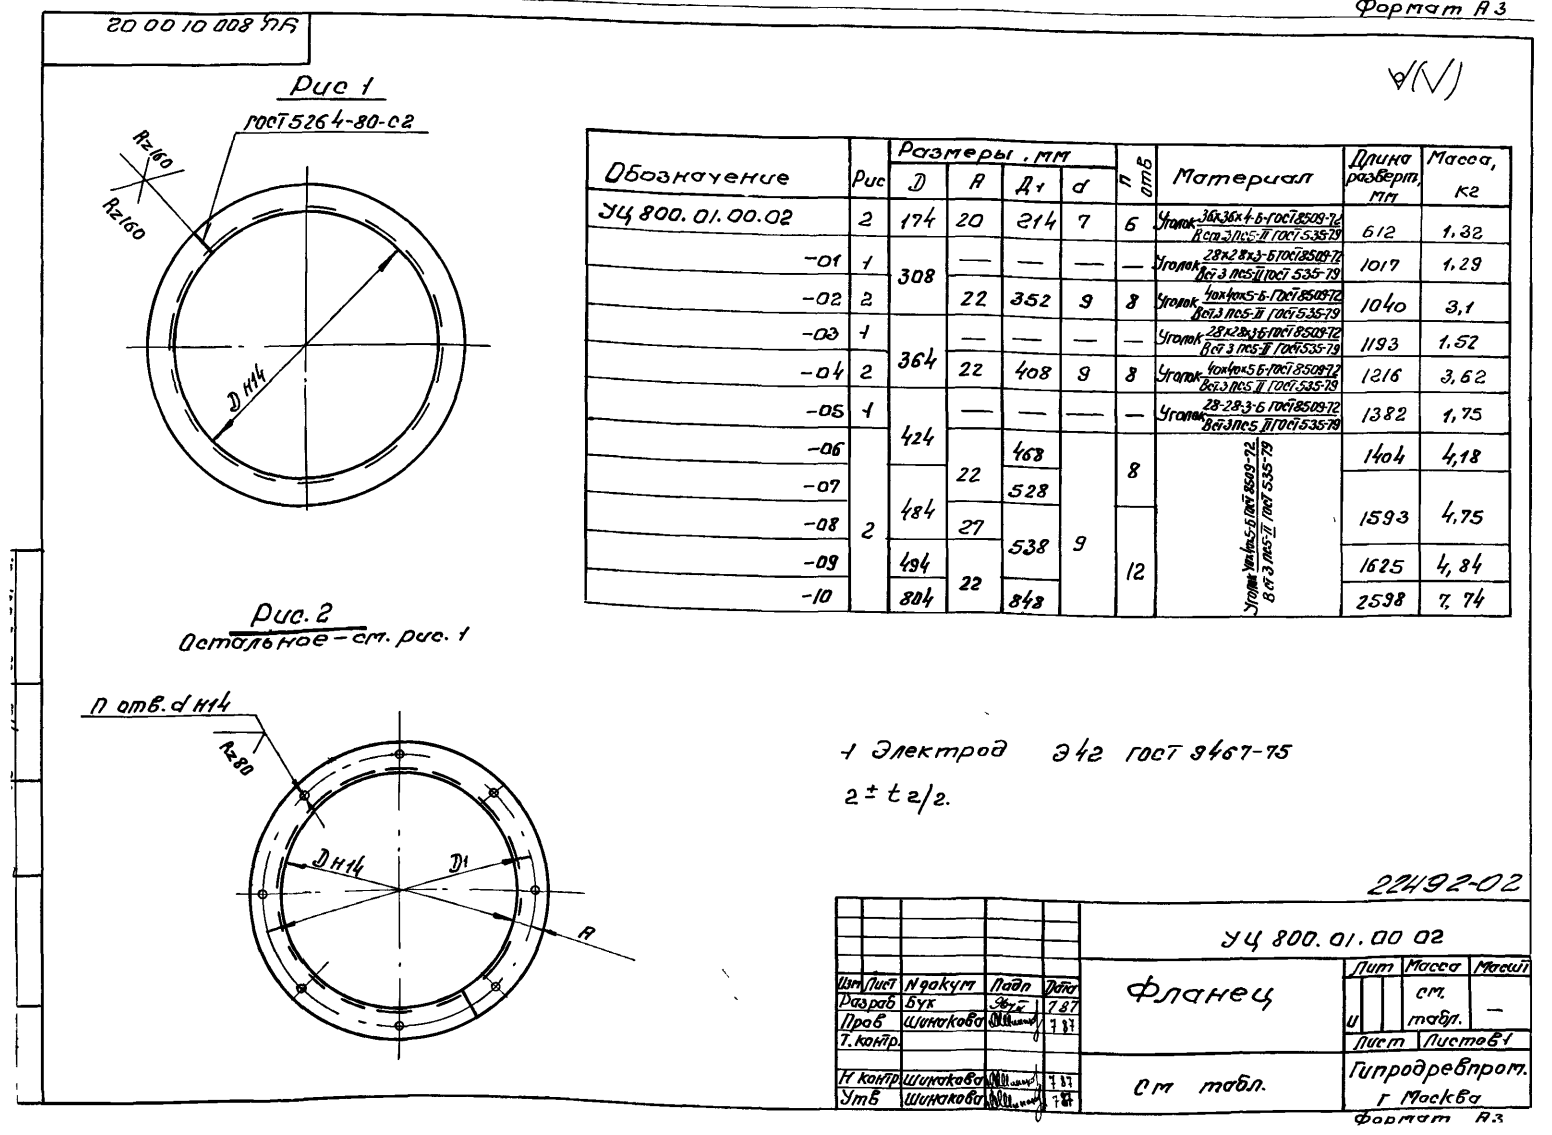 Формат А3
УЦ 800 01 00 02
Рис 1
ГОСТ 5264-80-С2
Rz160
Rz160
D H14
Обозначение Рис Размеры, мм n отв Материал Длина разверт, мм Масса, кг
D A Д1 d
УЦ 800.01.00.02 2 174 20 214 7 6 Уголок 36х36х4-Б-ГОСТ 8509-72 / В Ст 3 пс5-II ГОСТ 535-79 612 1.32
-01 1 308 — — — — Уголок 28х28х3-Б ГОСТ 8509-72 / ВСт 3 пс5-II ГОСТ 535-79 1017 1.29
-02 2 22 352 9 8 Уголок 40х40х5-Б-ГОСТ 8509-72 / ВСт 3 пс5-II ГОСТ 535-79 1040 3,1
-03 1 364 — — — — Уголок 28х28х3-Б ГОСТ 8509-72 / ВСт 3 пс5-II ГОСТ 535-79 1193 1.52
-04 2 22 408 9 8 Уголок 40х40х5 Б-ГОСТ 8509-72 / ВСт 3 пс5 II ГОСТ 535-79 1216 3,62
-05 1 424 — — — — Уголок 28-28-3-Б ГОСТ 8509-72 / ВСт 3 пс5 II ГОСТ 535-79 1382 1,75
-06 2 22 468 9 8 Уголок 40х40х5-Б ГОСТ 8509-72 / ВСт 3 пс5-II ГОСТ 535-79 1404 4,18
-07 484 528 1593 4,75
-08 27 538 12
-09 494 22 1625 4,84
-10 804 848 2598 7,74
Рис. 2
Остальное - см. рис. 1
n отв. d H14
Rz80
D H14
D1
A
1 Электрод Э42 ГОСТ 9467-75
2 ± t2/2.
22492-02
УЦ 800.01.00 02
Изм Лист N докум Подп Дата
Разраб Бук 7 87
Пров Шинакова 7 87
Т. контр.
Н контр Шинакова 7 87
Утв Шинакова 7 87
Фланец
Лит Масса Масшт
И см. табл. —
Лист Листов 1
см табл.
Гипродревпром.
г Москва
Формат А3